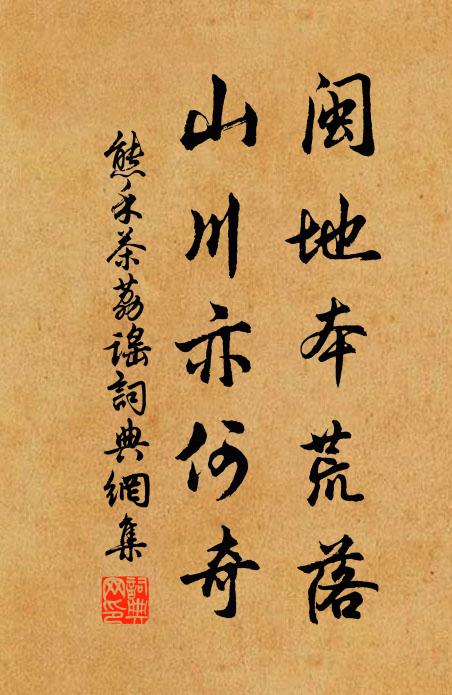 闽地本荒落
山川亦何奇
熊禾茶荔谣詞典網集
詞典網印